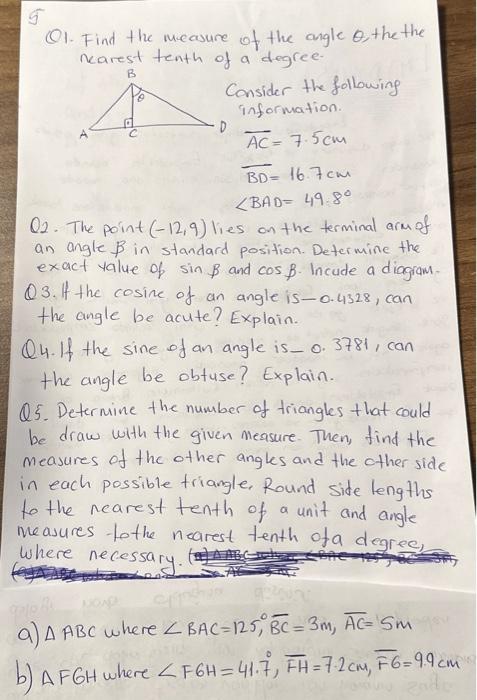 5
Q1. Find the measure of the angle θ, the the
nearest tenth of a degree.
B
θ
A
C
D
Consider the following
information.
AC = 7.5cm
BD = 16.7cm
∠BAD = 49.8°
Q2. The point (-12,9) lies on the terminal arm of
an angle β in standard position. Determine the
exact value of sin β and cos β. Incude a diagram.
Q3. If the cosine of an angle is -0.4328, can
the angle be acute? Explain.
Q4. If the sine of an angle is - 0. 3781, can
the angle be obtuse? Explain.
Q5. Determine the number of triangles that could
be draw with the given measure. Then, find the
measures of the other angles and the other side
in each possible triangle. Round side lengths
to the nearest tenth of a unit and angle
measures to the nearest tenth of a degree,
where necessary.
a) Δ ABC where ∠ BAC = 125°, BC = 3m, AC = 5m
b) Δ FGH where ∠ FGH = 41.7°, FH = 7.2cm, FG = 9.9cm